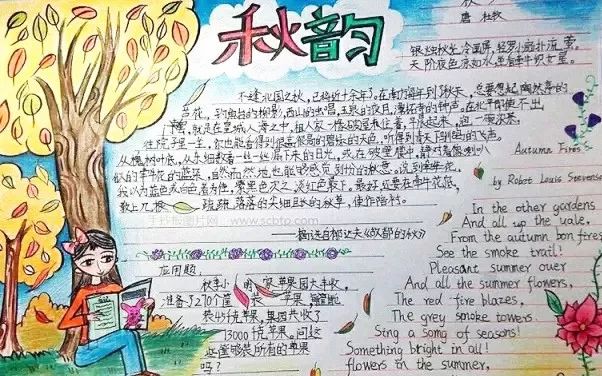 秋韵
唐 杜牧
银烛秋光冷画屏,轻罗小扇扑流萤。
天阶夜色凉如水,坐看牵牛织女星。
不逢北国之秋,已将近十余年了。在南方每年到了秋天,总要想起陶然亭的
芦花,钓鱼台的柳影,西山的虫唱,玉泉的夜月,潭柘寺的钟声。在北平即使不出
门去罢,就是在皇城人海之中,租人家一椽破屋来住着,早晨起来,泡一碗浓茶
似的牵牛花的蓝朵,自然而然地也能够感觉到十分的秋意。说到了牵牛花,
我以为以蓝色或白色者为佳,紫黑色次之,淡红色最下。最好,还要在牵牛花底,
疏疏落落的尖细且长的秋草,使作陪衬。
——摘选自郁达夫《故都的秋》
应用题
苹果园大丰收,
准备了270个筐
装45千克苹果,果园共收了
13000千克苹果。问这
些筐够装所有的苹果
吗?
Autumn Fires
by Robot Louis Stevenson
In the other gardens
And all up the vale,
From the autumn bon fires
See the smoke trail!
Pleasant summer over
And all the summer flowers,
The red fire blazes,
The grey smoke towers.
Sing a song of seasons!
Something bright in all!
flowers in the summer,